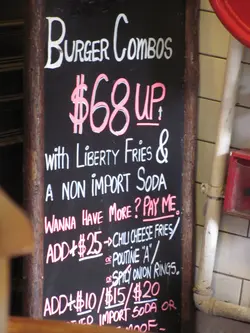 BURGER COMBOS
$68 UP
with LIBERTY FRIES &
A NON IMPORT SODA
WANNA HAVE MORE? PAY ME.
ADD $25 → CHILI CHEESE FRIES/
OR POUTINE "A"/
OR SPICY ONION RINGS.
ADD $10/$15/$20
IMPORT SODA OR